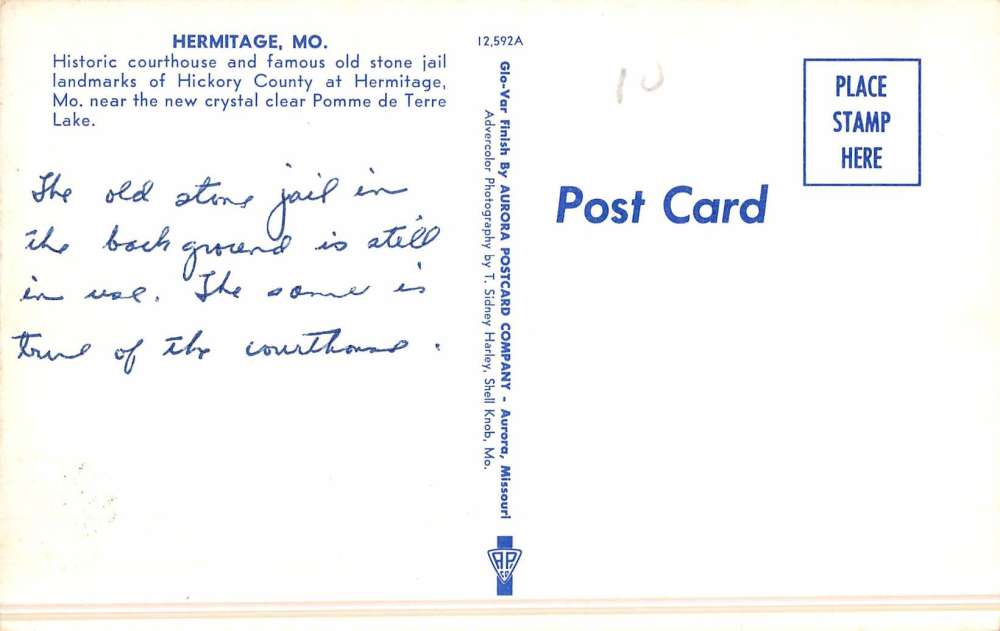 HERMITAGE, MO.
Historic courthouse and famous old stone jail
landmarks of Hickory County at Hermitage,
Mo. near the new crystal clear Pomme de Terre
Lake.
The old stone jail in
the back ground is still
in use. The same is
true of the courthouse.
12,592A
Glo-Var Finish By AURORA POSTCARD COMPANY - Aurora, Missouri
Advercolor Photography by T. Sidney Harley, Shell Knob, Mo.
APCO
10
PLACE
STAMP
HERE
Post Card